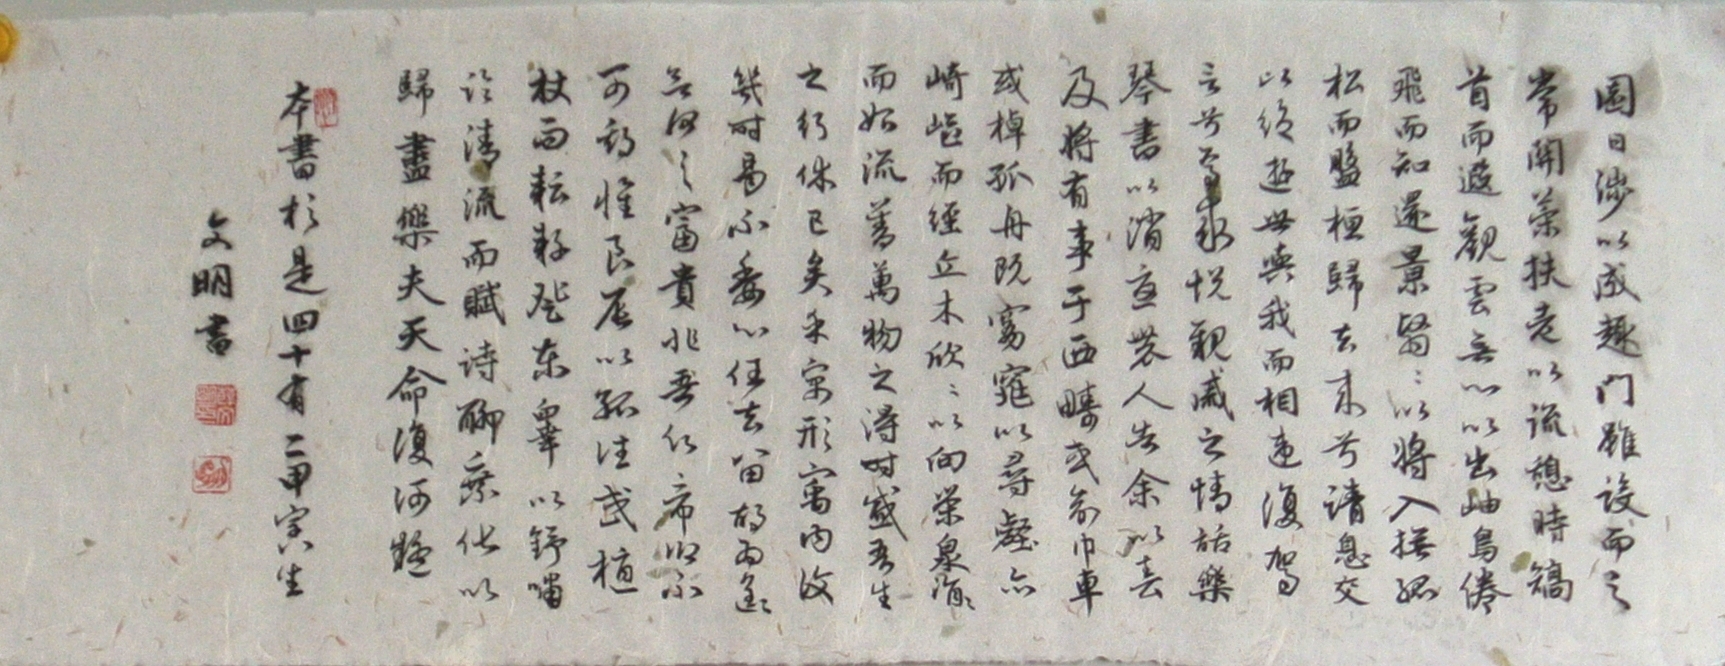 園日涉以成趣門雖設而之
常關策扶老以流憩時矯
首而遐觀雲無心以出岫鳥倦
飛而知還景翳〻以將入撫孤
松而盤桓歸去來兮請息交
以絕遊世與我而相違復駕
言兮焉求悅親戚之情話樂
琴書以消憂農人告余以春
及將有事于西疇或命巾車
或棹孤舟既窈窕以尋壑亦
崎嶇而經丘木欣〻以向榮泉涓〻
而始流善萬物之得時感吾生
之行休已矣乎形寓內復
幾時曷不委心任去留胡為遑〻
何之富貴非吾願帝鄉不
可期懷良辰以孤往或植
杖而耘耔登東皋以舒嘯
臨清流而賦詩聊乘化以
歸盡樂夫天命復何疑
本書於是四十有二甲生
文明書